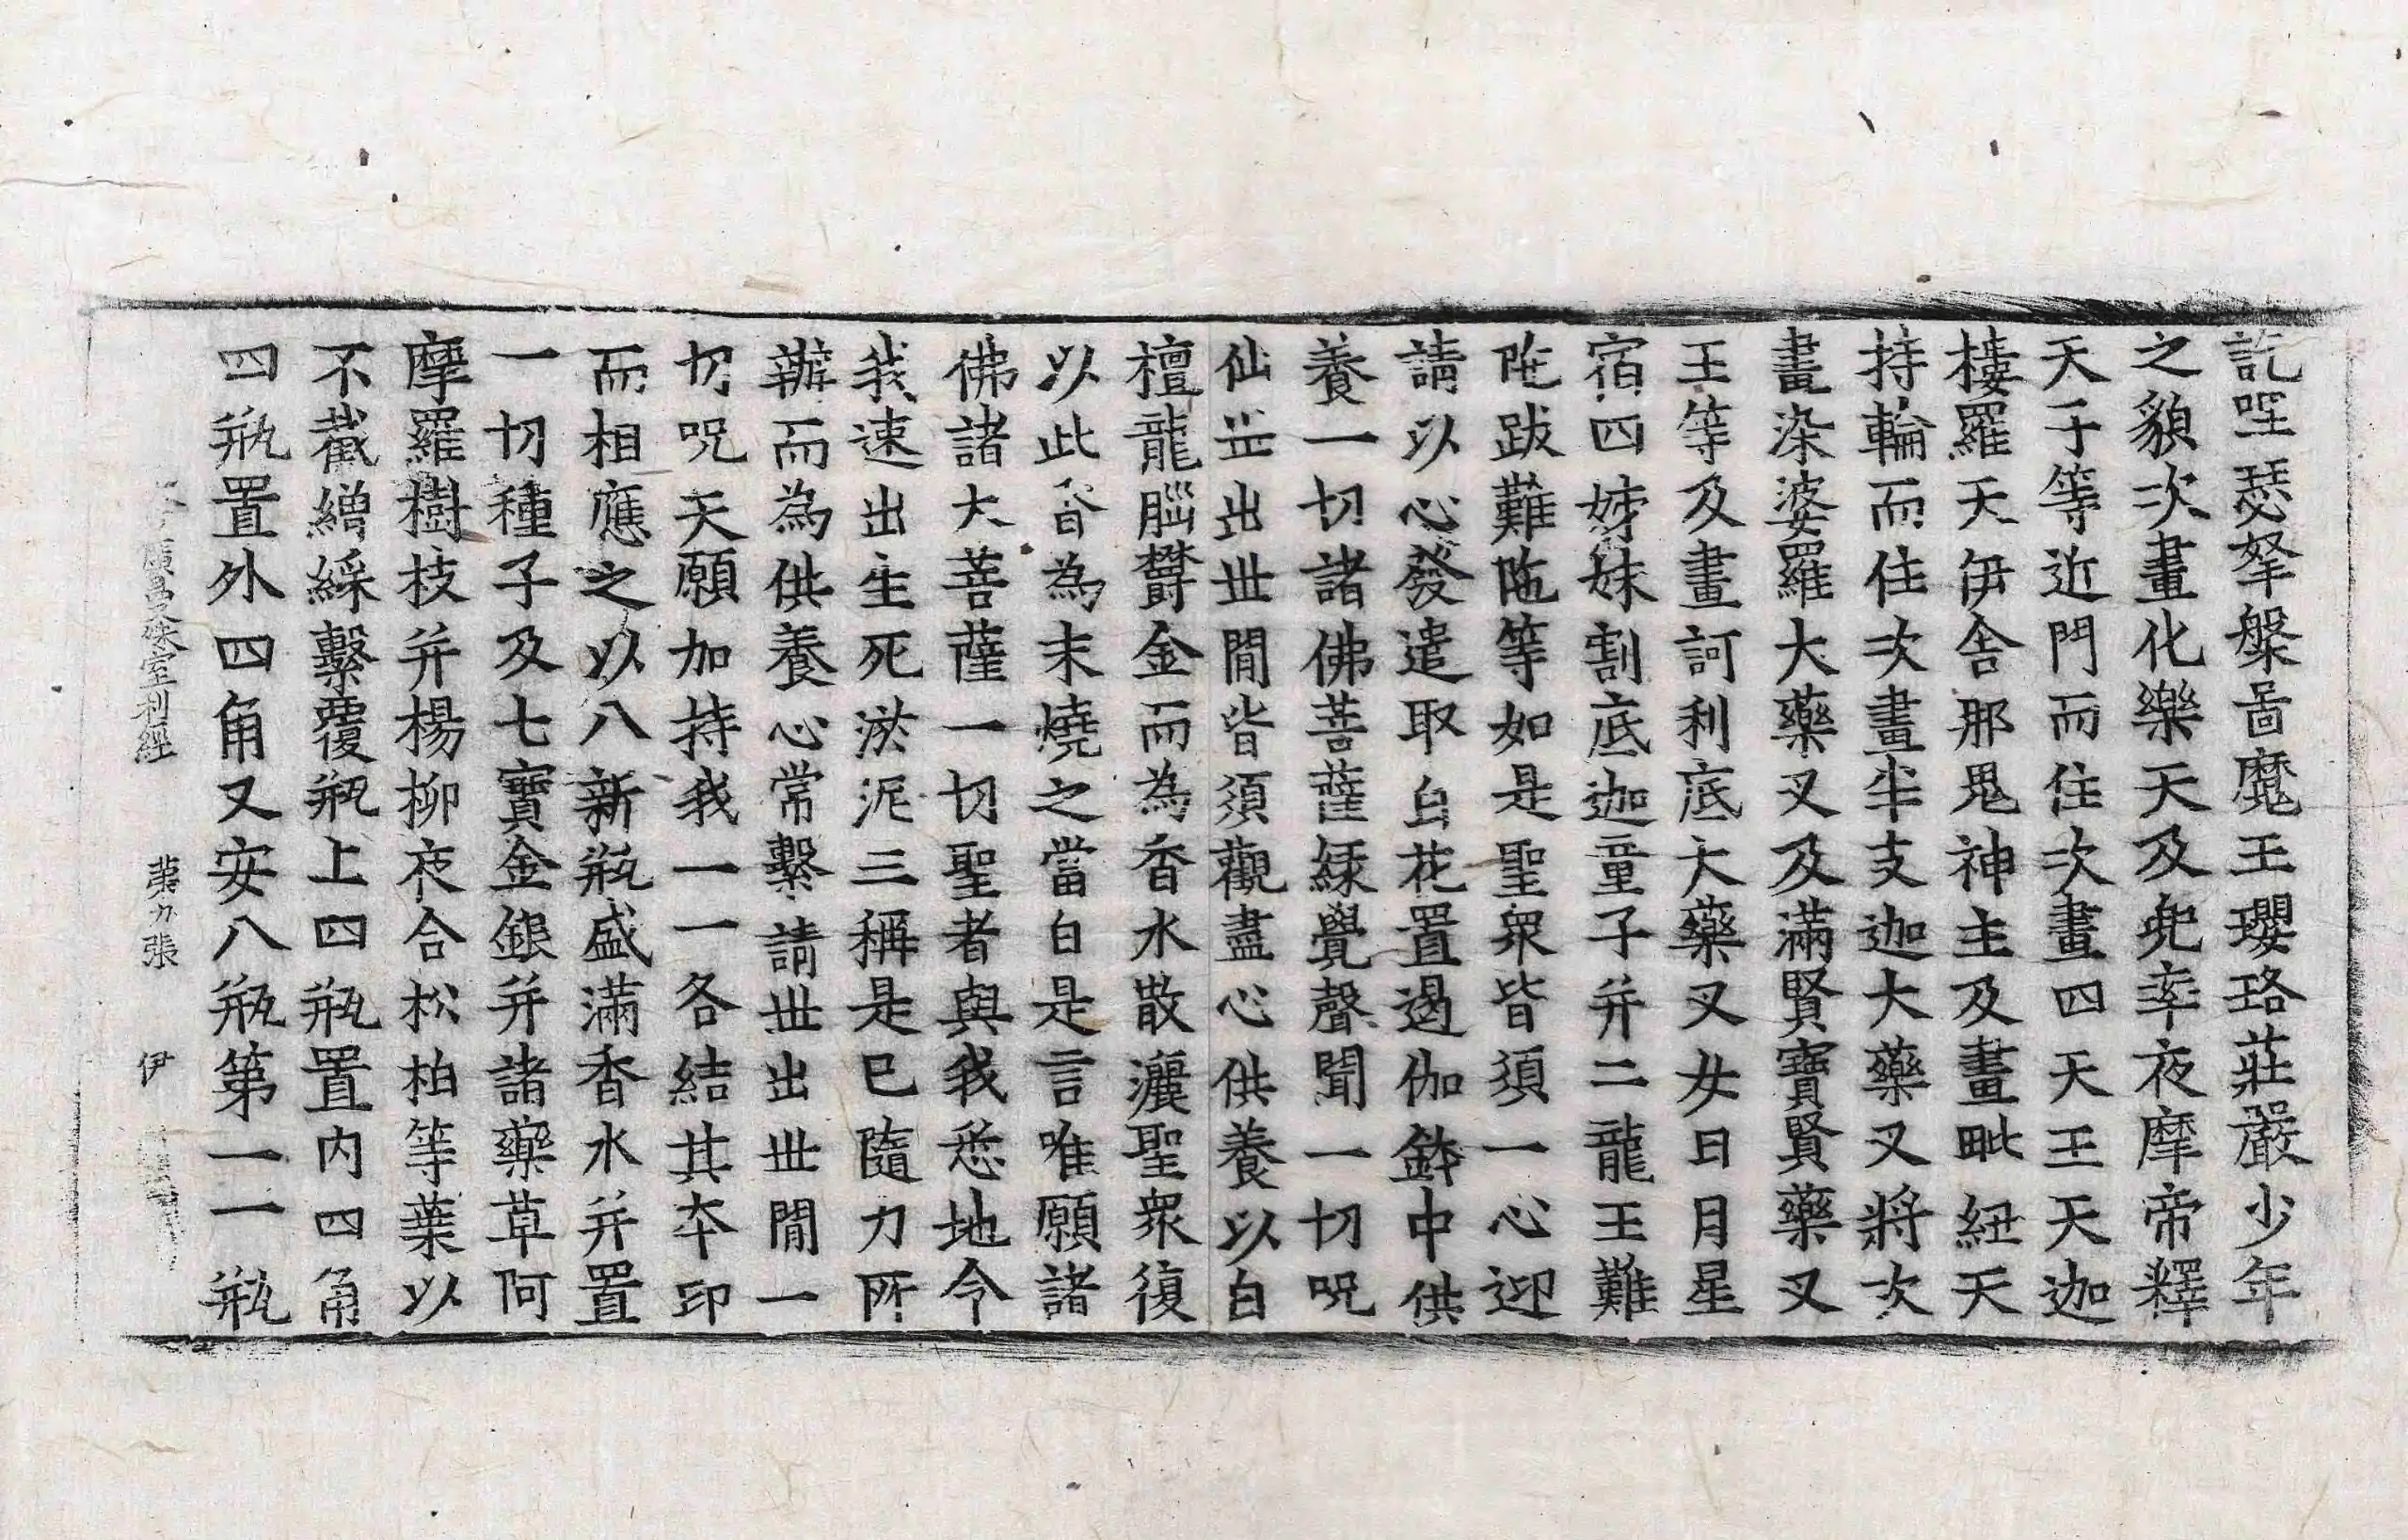 訖哩瑟拏槃啚魔王瓔珞莊嚴少年
之貌次畫化樂天及兜率夜摩帝釋
天子等近門而住次畫四天王天迦
樓羅天伊舍那鬼神主及畫毗紐天
持輪而住次畫半支迦大藥叉將次
畫染婆羅大藥叉及滿賢寶賢藥叉
王等及畫訶利底大藥叉女日月星
宿四姊妹割底迦童子并二龍王難
陁跋難陁等如是聖衆皆須一心迎
請以心發遣取白花置遏伽鉢中供
養一切諸佛菩薩緣覺聲聞一切呪
仙並出世間皆須觀盡心供養以白
檀龍腦欝金而為香水散灑聖衆復
以此香為末燒之當白是言唯願諸
佛諸大菩薩一切聖者與我悉地今
我速出生死淤泥三稱是已隨力所
辦而為供養心常繫請世出世間一
切呪天願加持我一一各結其夲印
而相應之以八新瓶盛滿香水并置
一切種子及七寶金鎚并諸藥草阿
摩羅樹枝并楊柳夜合松柏等葉以
不截繒綵繫覆瓶上四瓶置内四角
四瓶置外四角又安八瓶第一一瓶
廣曼殊室利經 第九張 伊